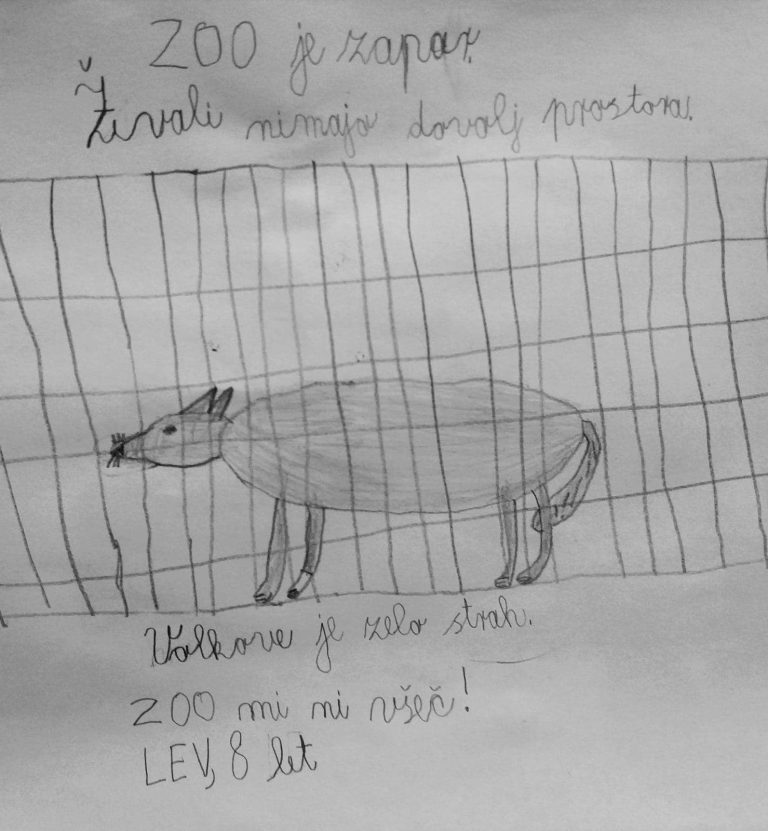 ZOO je zapor.
Živali nimajo dovolj prostora.
Volkove je zelo strah.
ZOO mi ni všeč!
LEV, 8 let